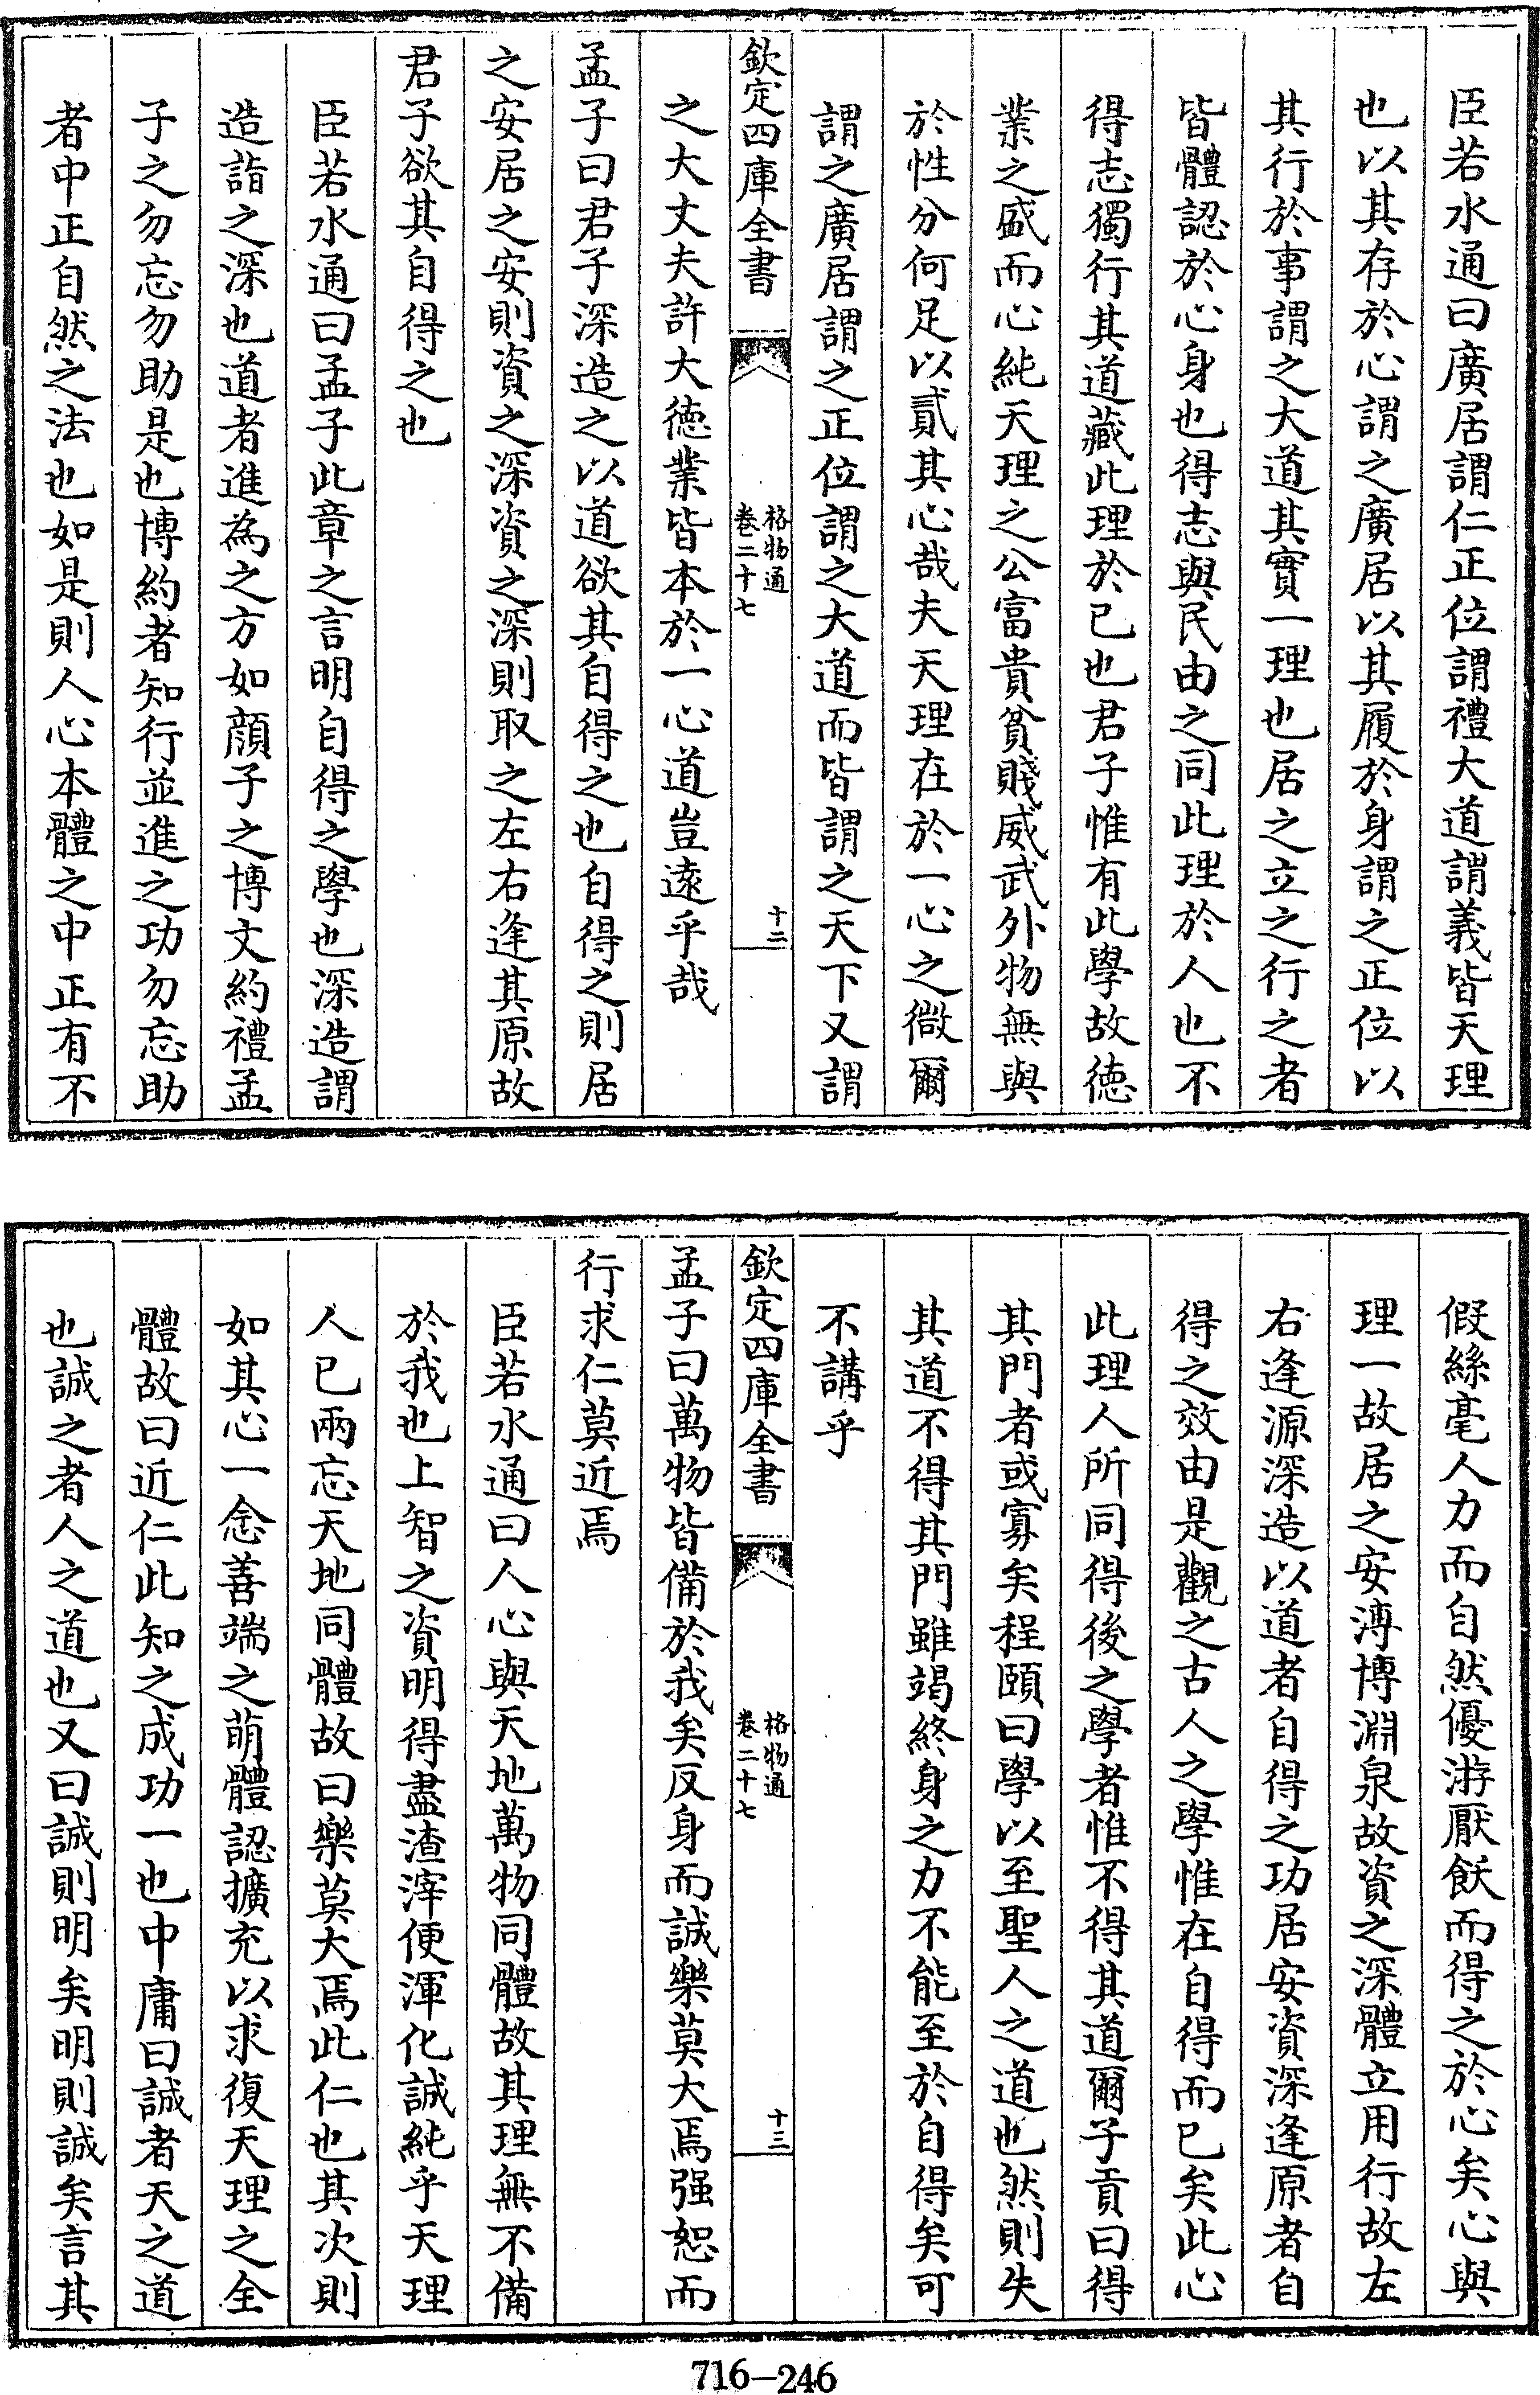 臣若水通曰廣居謂仁正位謂禮大道謂義皆天理
也以其存於心謂之廣居以其履於身謂之正位以
其行於事謂之大道其實一理也居之立之行之者
皆體認於心身也得志與民由之同此理於人也不
得志獨行其道藏此理於已也君子惟有此學故徳
業之盛而心純天理之公富貴貧賤威武外物無與
於性分何足以貳其心哉夫天理在於一心之微爾
謂之廣居謂之正位謂之大道而皆謂之天下又謂
欽定四庫全書
格物通
卷二十七
十二
之大丈夫許大徳業皆本於一心道豈遠乎哉
孟子曰君子深造之以道欲其自得之也自得之則居
之安居之安則資之深資之深則取之左右逢其原故
君子欲其自得之也
臣若水通曰孟子此章之言明自得之學也深造謂
造詣之深也道者進為之方如顔子之博文約禮孟
子之勿忘勿助是也博約者知行並進之功勿忘助
者中正自然之法也如是則人心本體之中正有不
假絲毫人力而自然優游厭飫而得之於心矣心與
理一故居之安溥博淵泉故資之深體立用行故左
右逢源深造以道者自得之功居安資深逢原者自
得之效由是觀之古人之學惟在自得而已矣此心
此理人所同得後之學者惟不得其道爾子貢曰得
其門者或寡矣程頤曰學以至聖人之道也然則失
其道不得其門雖竭終身之力不能至於自得矣可
不講乎
欽定四庫全書
格物通
卷二十七
十三
孟子曰萬物皆備於我矣反身而誠樂莫大焉强恕而
行求仁莫近焉
臣若水通曰人心與天地萬物同體故其理無不備
於我也上智之資明得盡渣滓便渾化誠純乎天理
人已兩忘天地同體故曰樂莫大焉此仁也其次則
如其心一念善端之萌體認擴充以求復天理之全
體故曰近仁此知之成功一也中庸曰誠者天之道
也誠之者人之道也又曰誠則明矣明則誠矣言其
716-246